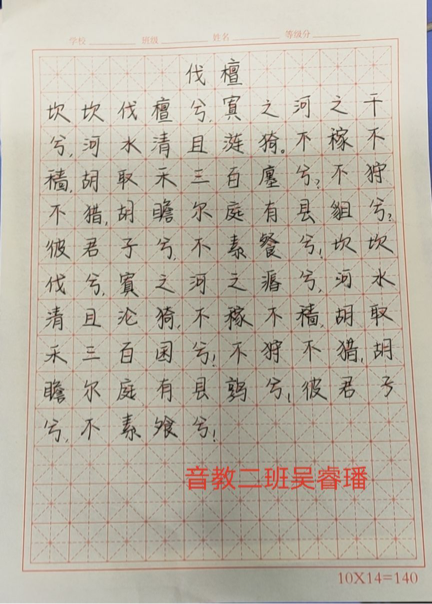 学校 班级 姓名 等级分
伐檀
坎坎伐檀兮,寘之河之干
兮,河水清且涟猗。不稼不
穑,胡取禾三百廛兮?不狩
不猎,胡瞻尔庭有县貆兮?
彼君子兮,不素餐兮!坎坎
伐兮,寘之河之漘兮,河水
清且沦猗,不稼不穑,胡取
禾三百囷兮!不狩不猎,胡
瞻尔庭有县鹑兮!彼君子
兮,不素飧兮!
音教二班吴睿璠
10X14=140